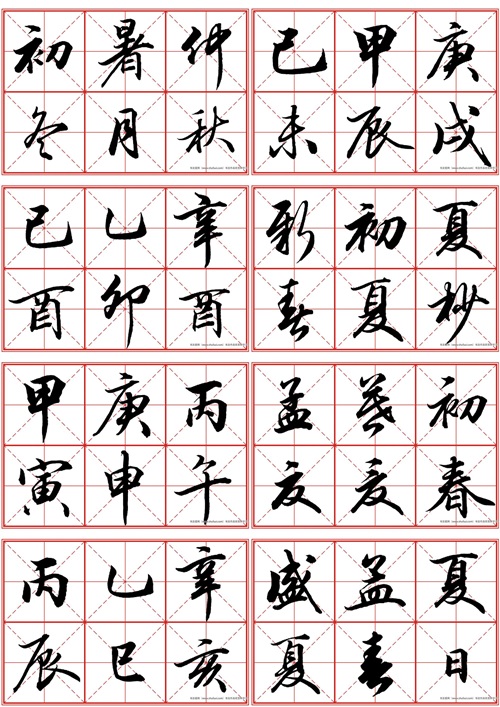 初暑仲
冬月秋
己甲庚
未辰戌
己乙辛
酉卯酉
新初夏
春夏杪
甲庚丙
寅申午
孟暮初
夏夏春
丙乙辛
辰巳亥
盛孟夏
夏春日